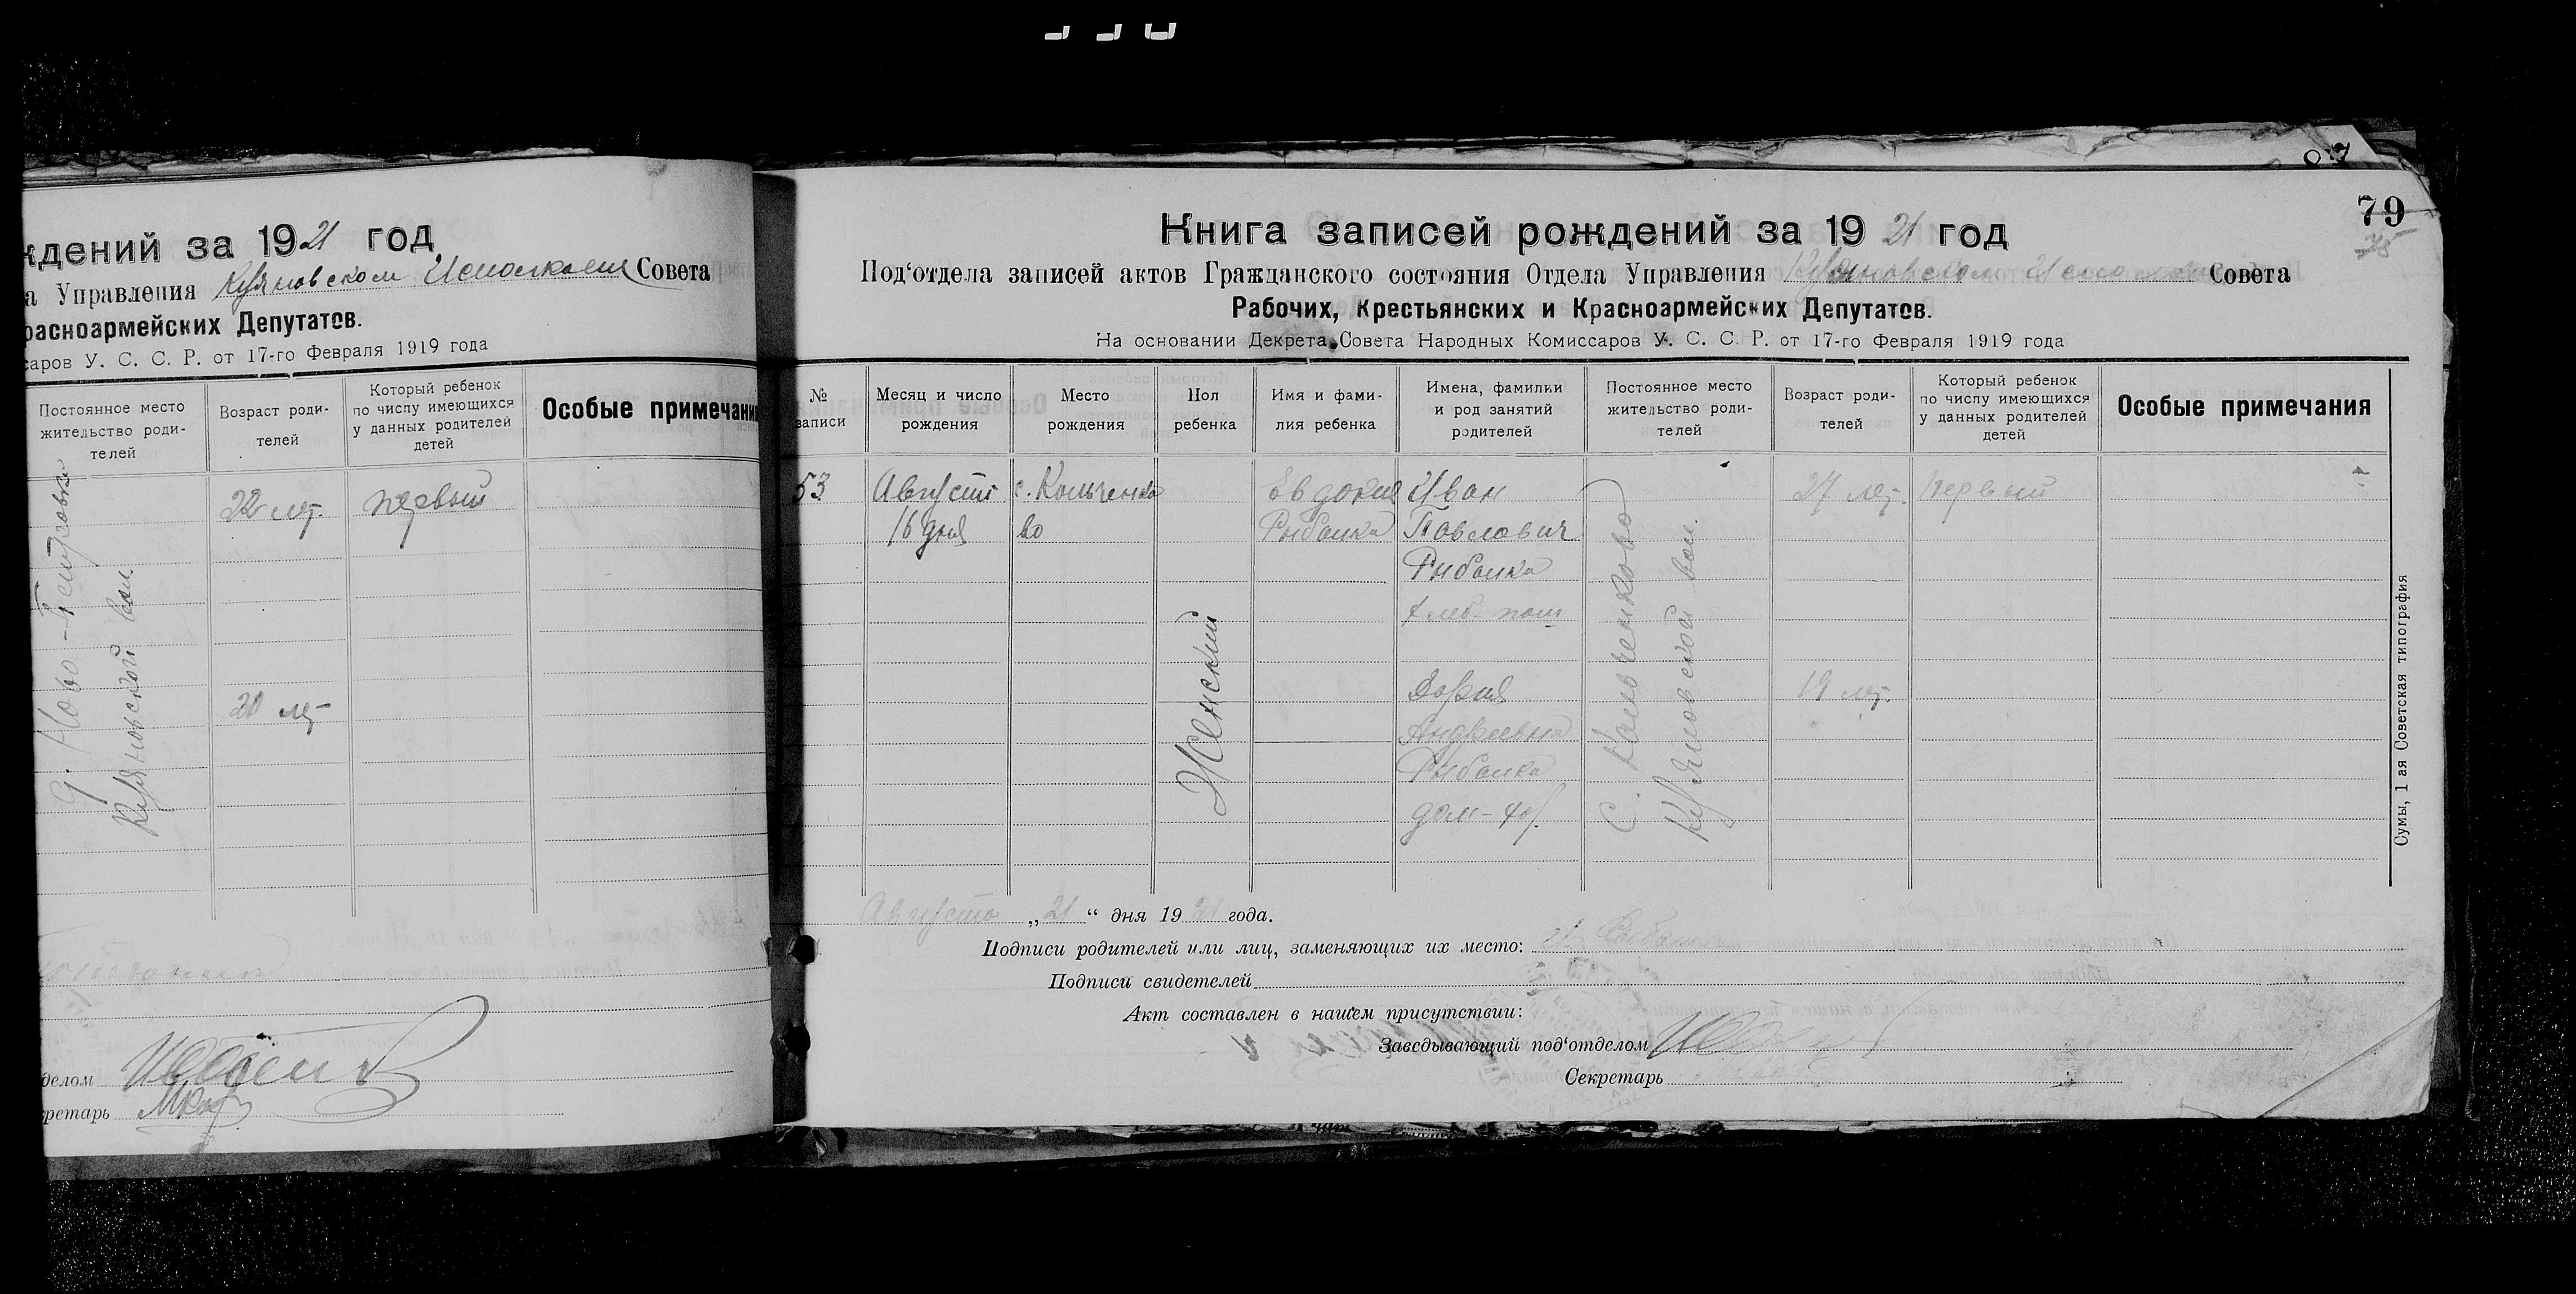 ждений за 1921 год
а Управления Куяновском Исполком Совета
расноармейских Депутатов.
саров У. С. С. Р. от 17-го Февраля 1919 года
Постоянное место жительство роди-телей
Возраст роди-телей
Который ребенок по числу имеющихся у данных родителей детей
Особые примечани
Ново-Петровка
Куяновской вол.
22 лет.
первый
20 лет
делом
ретарь
79
Книга записей рождений за 1921 год
Под‘отдела записей актов Гражданского состояния Отдела Управления Куяновском Исполком Совета
Рабочих, Крестьянских и Красноармейских Депутатов.
На основании Декрета Совета Народных Комиссаров У. С. С. Р. от 17-го Февраля 1919 года
№ записи
Месяц и число рождения
Место рождения
Пол ребенка
Имя и фами-лия ребенка
Имена, фамилии и род занятий родителей
Постоянное место жительство роди-телей
Возраст роди-телей
Который ребенок по числу имеющихся у данных родителей детей
Особые примечания
53
Август
16 дня
с. Кольченко
во
Женский
Евдокия
Рыбалка
Иван
Павлович
Рыбалка
хлеб-паш
София
Андреевна
Рыбалка
дом-хоз.
С. Кольченково
Куяновской вол.
27 лет.
19 лет.
Первый
Августа „21“ дня 1921 года.
Подписи родителей или лиц, заменяющих их место:
Подписи свидетелей
Акт составлен в нашем присутствии:
Заведывающий под‘отделом
Секретарь
Сумы, 1 ая Советская типография